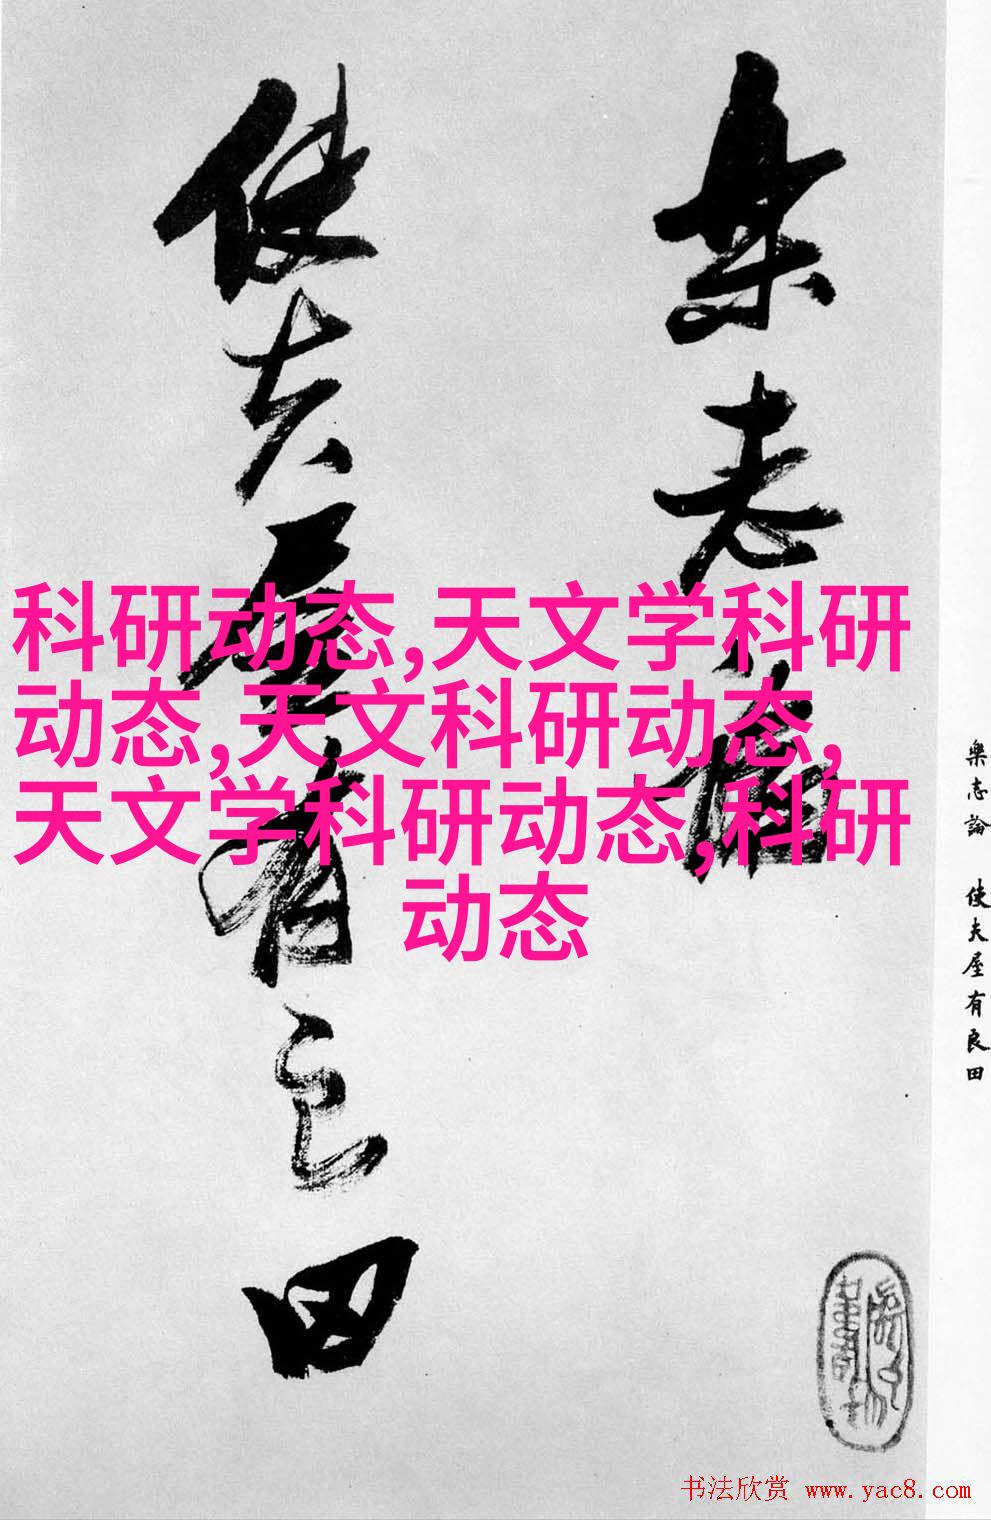 樂志論
使夫屋有良田
科研动态,天文学科研
动态,天文科研动态,
天文学科研动态,科研
动态
樂志論 使夫屋有良田
书法欣赏 www.yac8.com